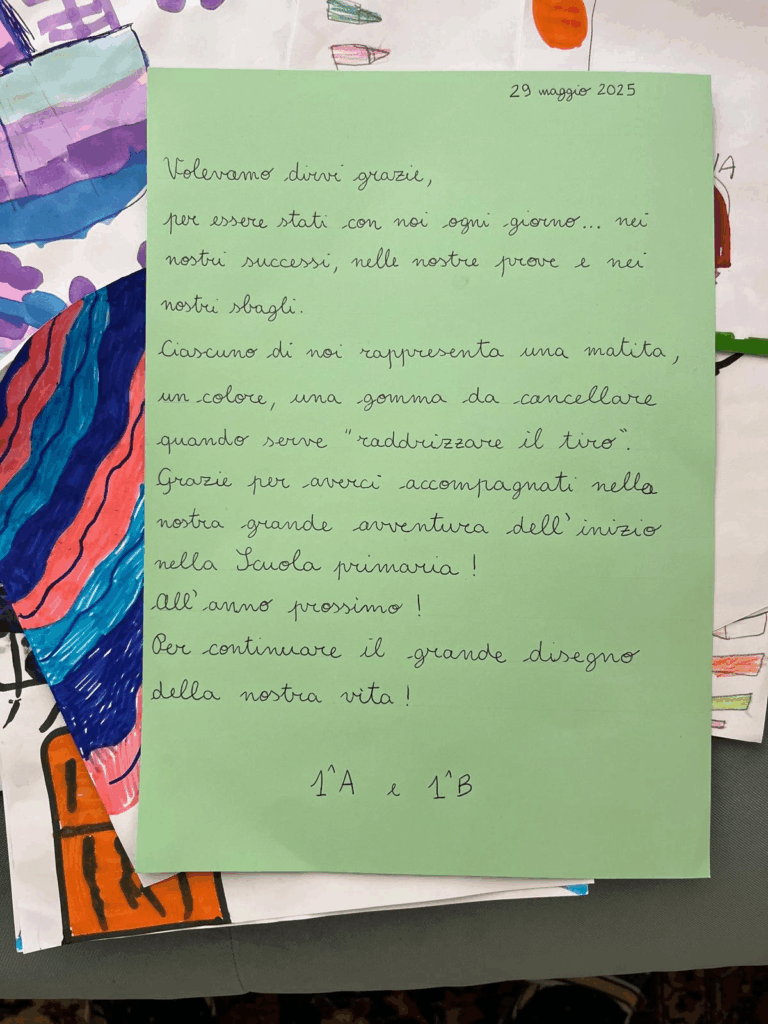 29 maggio 2025
Volevamo dirvi grazie,
per essere stati con noi ogni giorno... nei
nostri successi, nelle nostre prove e nei
nostri sbagli.
Ciascuno di noi rappresenta una matita,
un colore, una gomma da cancellare
quando serve "raddrizzare il tiro".
Grazie per averci accompagnati nella
nostra grande avventura dell'inizio
nella Scuola primaria!
All'anno prossimo!
Per continuare il grande disegno
della nostra vita!
1^A e 1^B